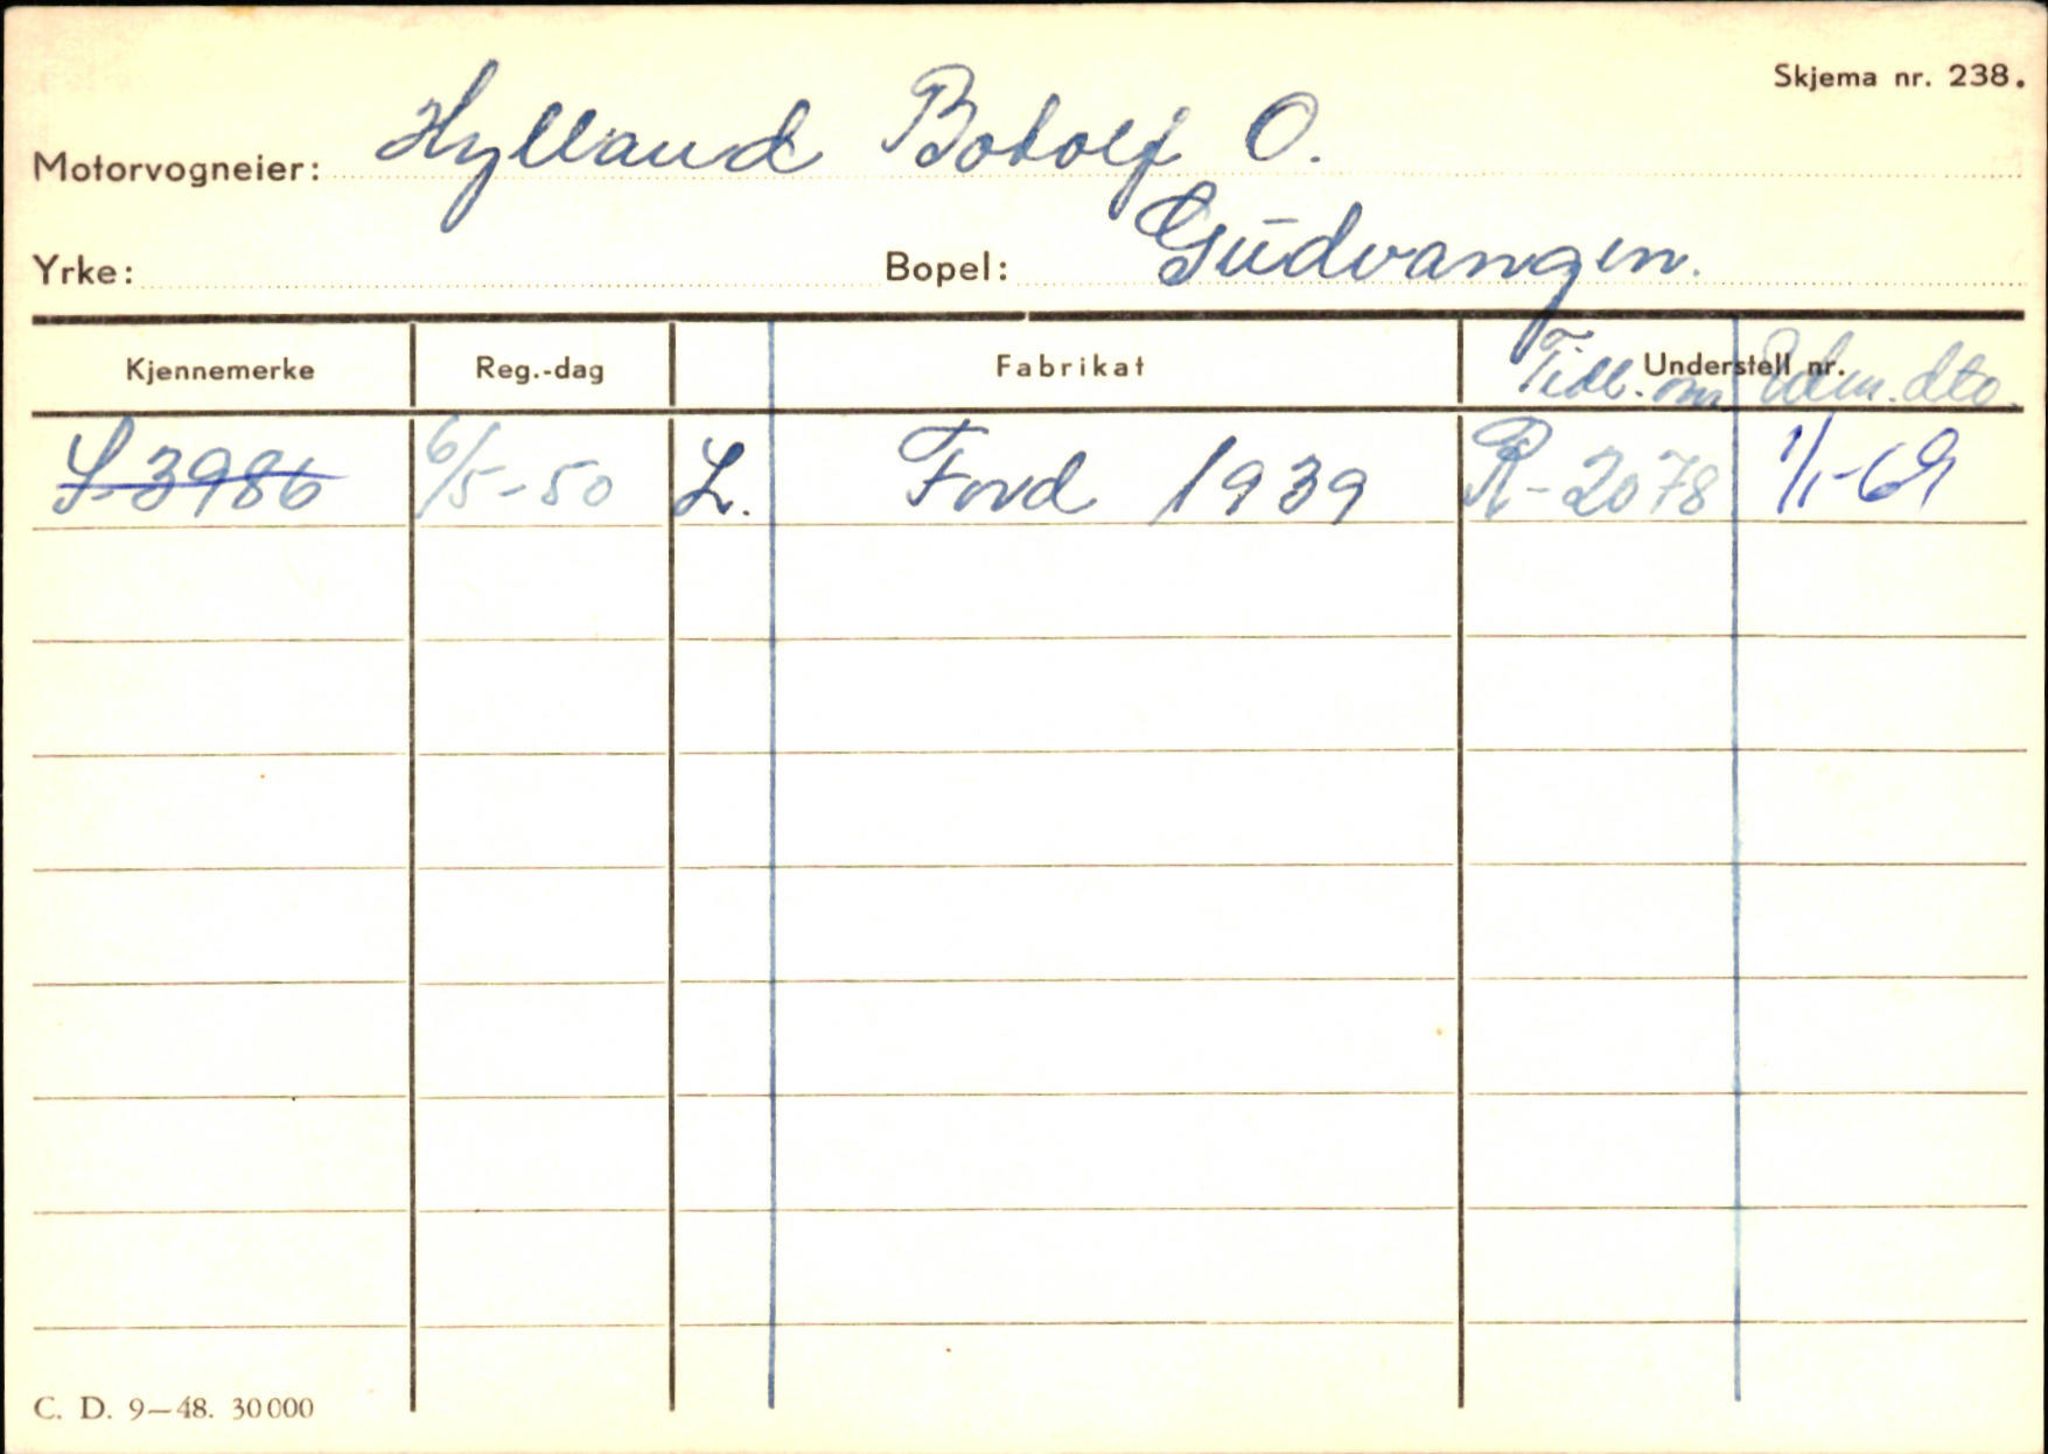 Skjema nr. 238.
Motorvogneier: Hylland Botolf O.
Yrke: Bopel: Gudvangen.
Kjennemerke Reg.-dag Fabrikat Understell nr.
Tidl. om Udm. dto.
S-3986 6/5-50 L. Ford 1939 R-2078 1/1-69
C. D. 9—48. 30000